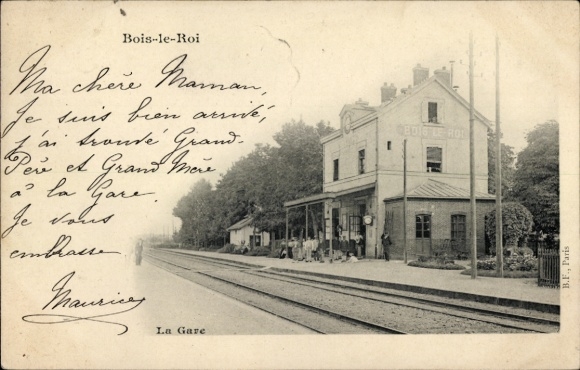 Bois-le-Roi
Ma chère Maman,
Je suis bien arrivé,
j'ai trouvé Grand-
Père et Grand Mère
à la Gare.
Je vous
embrasse
Maurice
BOIS-LE-ROI
La Gare
B. F., Paris